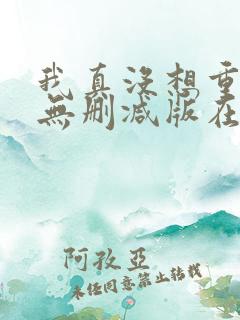 我真没想重
無删减版在
阿孜亞
未经同意禁止转载